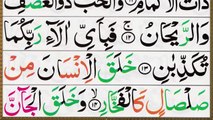 ذَاتُ الْاَكْمَامِ وَالْحَبُّ ذُو الْعَصْفِ
وَالرَّيْحَانُ ۚ ١٢ فَبِاَيِّ اٰلَآءِ رَبِّكُمَا
تُكَذِّبٰنِ ١٣ خَلَقَ الْاِنْسَانَ مِنْ
صَلْصَالٍ كَالْفَخَّارِ ١٤ وَخَلَقَ الْجَآنَّ